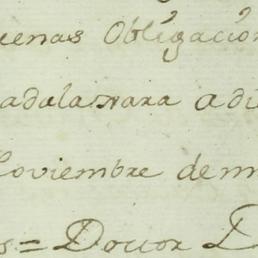 uenas Obligacion
adalaxara a di
Noviembre de m
s = Doctor D